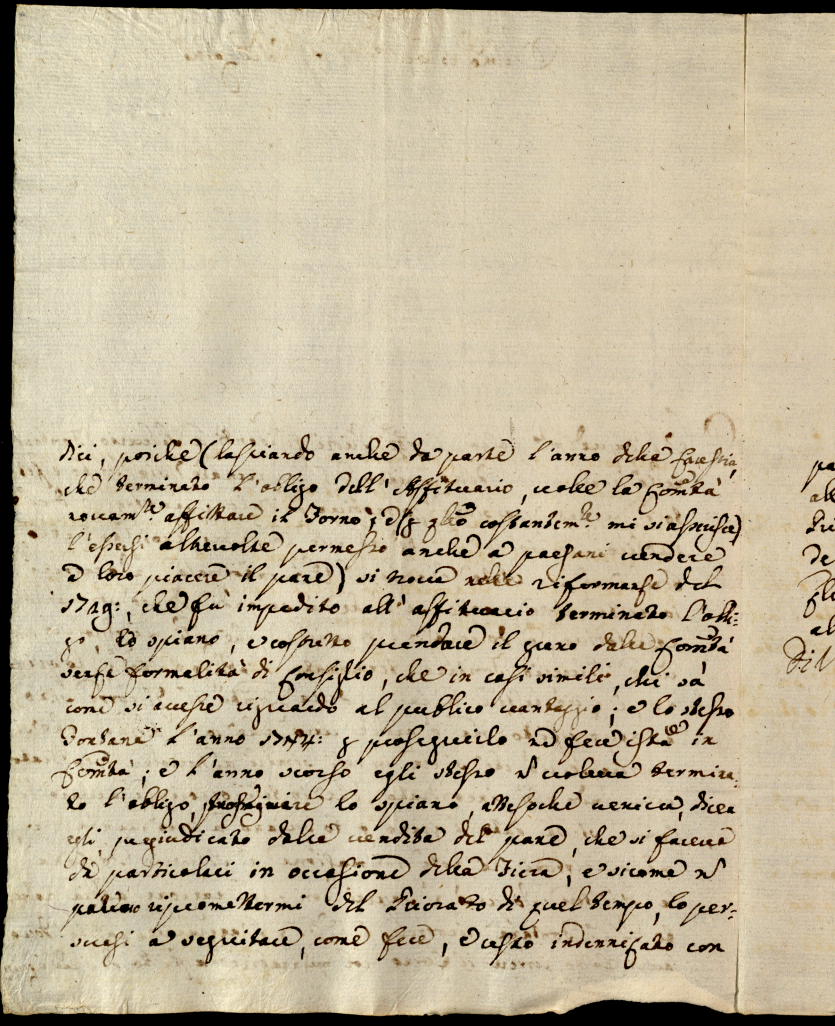 dici, poiche (lasciando anche da parte l'anno della Carestia,
che terminato l'obligo dell'Affittuario, volle la Com̃tà
novam.te affittare il Forno; e costantem.te mi si asserisce)
l'essersi altrevolte permesso anche a paesani vendere
a loro piacere il pane) si trova nelle riformanse del
1729:, che fù impedito all'affittuario terminato l'obli-
go, lo spiano, e costretto prendere il grano dalla Com̃tà
sensa formalità di Consiglio, che in casi simili, chi sà
come si avesse riguardo al publico vantaggio; e lo stesso
Fontana l'anno 1744: p proseguirlo ne fece istã in
Com̃tà; e l'anno scorso egli stesso ñ voleva termina-
to l'obligo, proseguire lo spiano, attesoche veniva, dicea
egli, pregiudicato dalla vendita del pane, che si faceva
da particolari in occasione della Fiera, e sicome ñ
potevo ripromettermi del Priorato di quel tempo, lo per-
suasi a seguitare, come fece, e restò indennizato con
pa
al
de
al